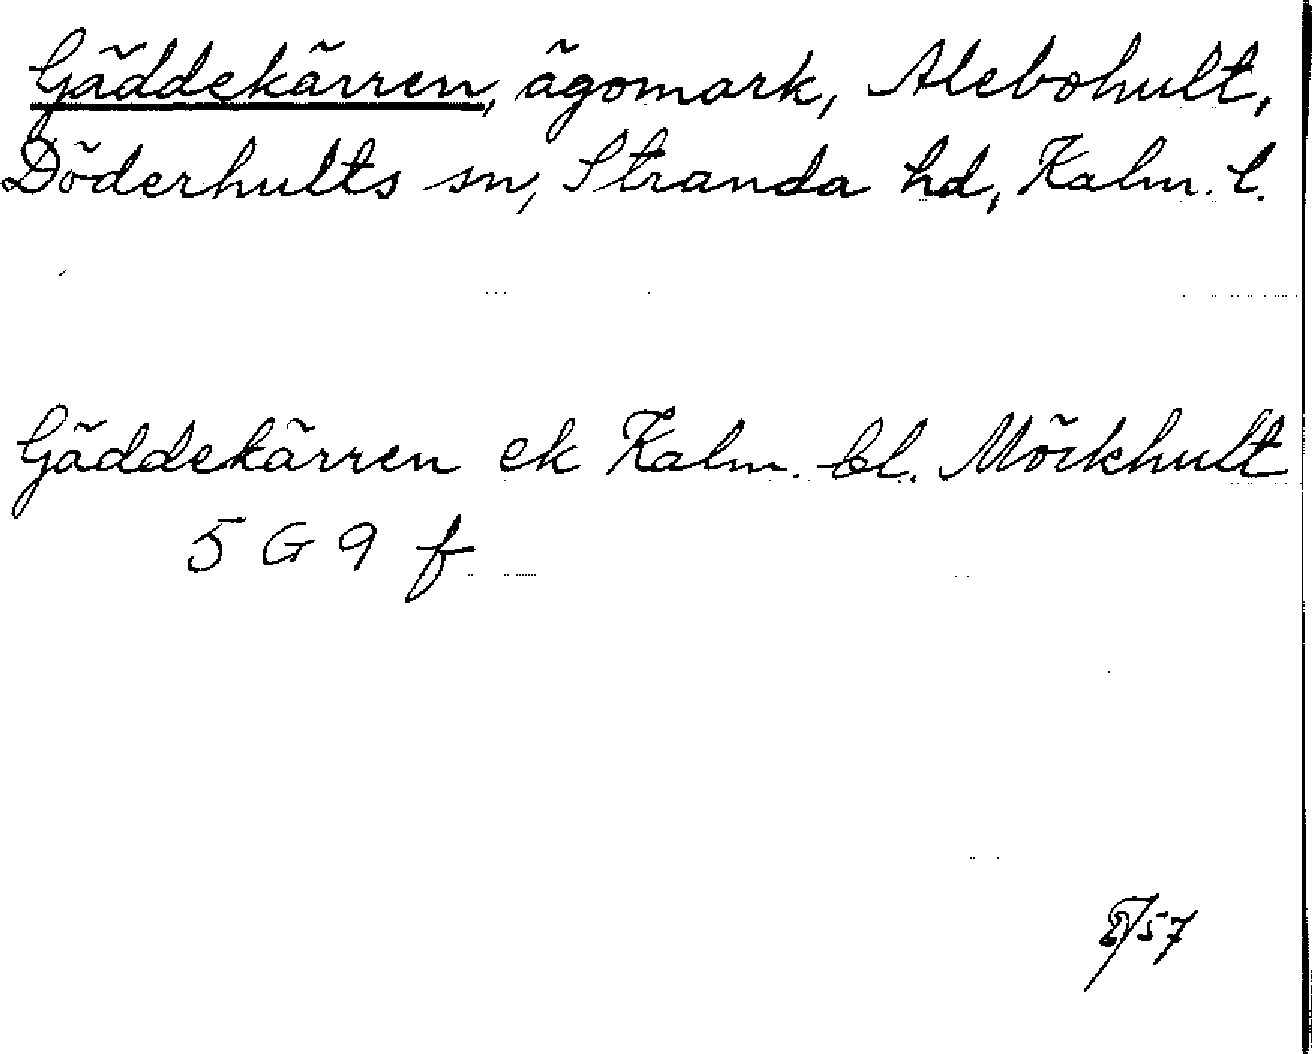 Gäddekärren, ägomark, Alebohult,
Döderhults sn, Stranda hd, Kalm. l.
Gäddekärren ek Kalm. bl. Möckhult
5 G 9 f
/57